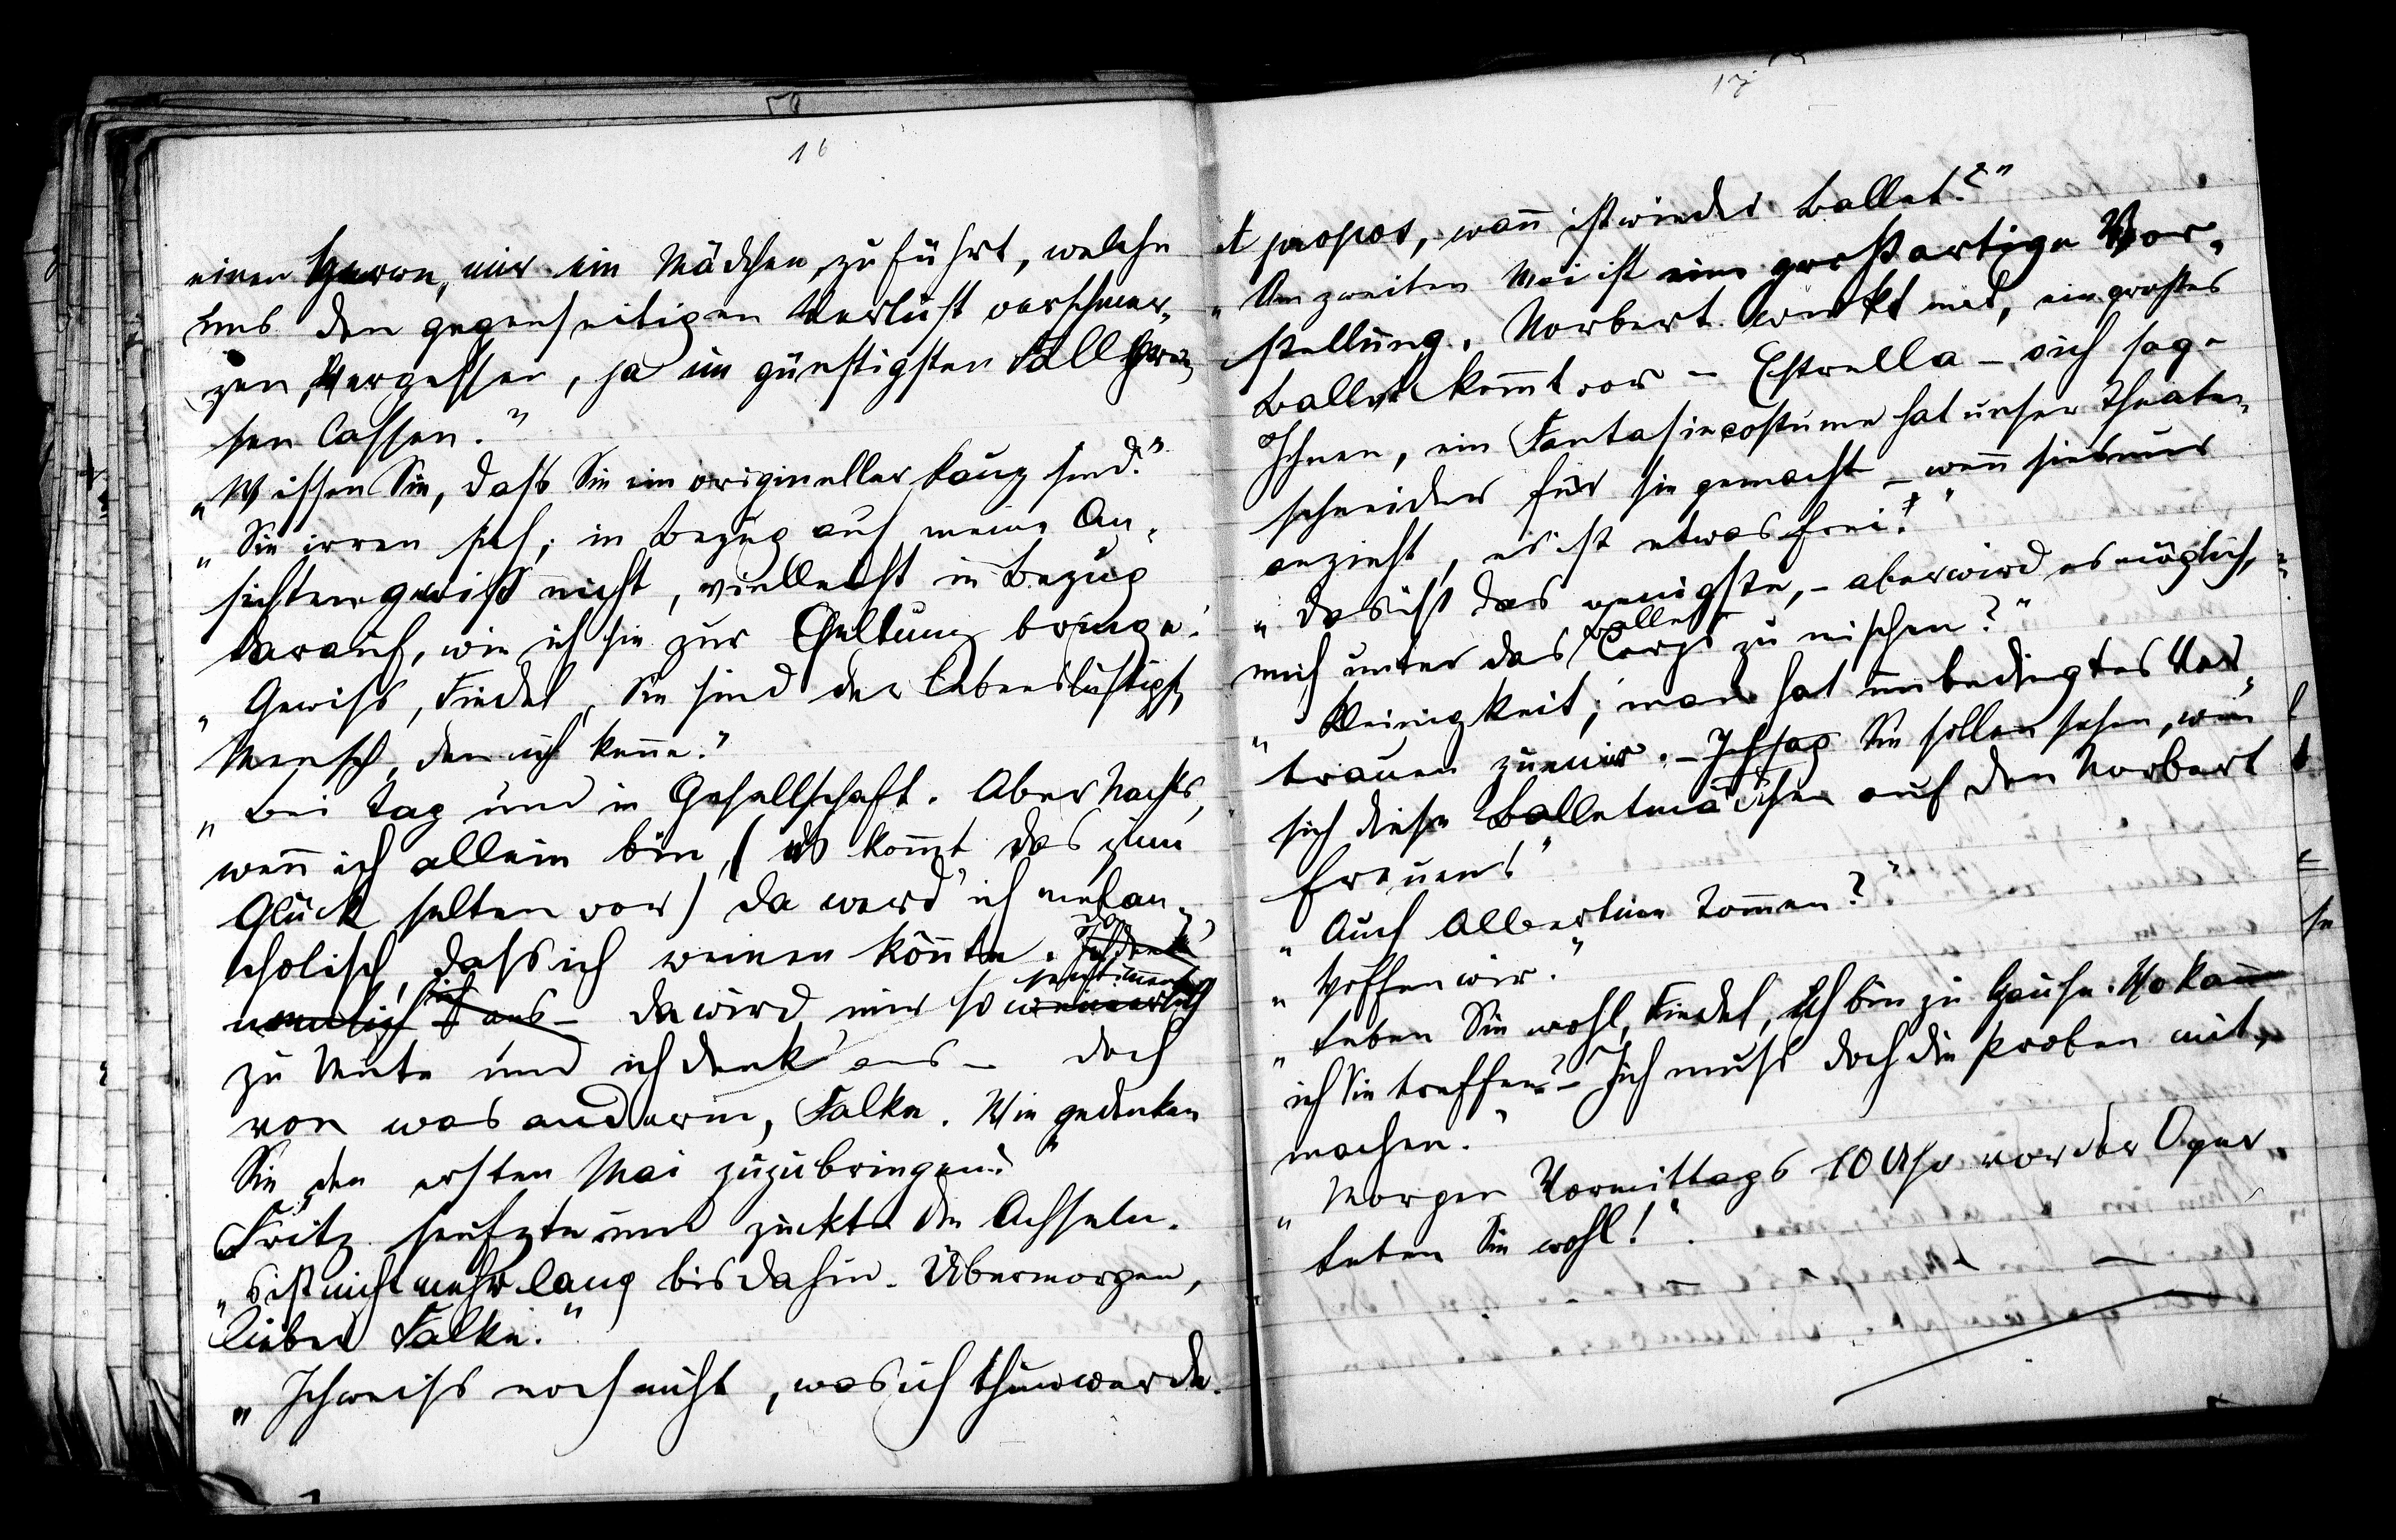 16
einen Herrn, mir ein Mädchen zuführt, welche
uns den gegenseitigen Verlust verschmer-
zen, vergessen, ja im günstigsten Fall
sen lassen."
„Wissen Sie, dass Sie ein origineller Kauz sind."
„Sie irren sich; in Bezug auf meine An-
sichten gewiß nicht, vielleicht in Bezug
darauf, wie ich sie zur Geltung bringe."
„Gewiss, Fiedel, Sie sind der lebenslustigste
Mensch, den ich kenne."
„Bei Tag und in Gesellschaft. Aber Nachts,
wenn ich allein bin, (es kommt das zum
Glück selten vor) da werd' ich melan-
cholisch, dass ich weinen könnte. Ich denk
ans – da wird mir so sentimental
zu Mute und ich denk' ans – doch
von was anderm, Falke. Wie gedenken
Sie den ersten Mai zuzubringen?"
Fritz seufzte und zuckte die Achseln.
„s ist nicht mehr lang bis dahin. Übermorgen,
lieber Falke."
„Ich weiss noch nicht, was ich thun werde.
17
A propos, wann ist wieder Ballet?"
„Am zweiten Mai ist eine großartige Vor-
stellung. Norbert wirkt mit, ein großes
Ballet kommt vor – Estrella – ich sag
Ihnen, ein Fantasiecostume hat unser Theater-
schneider für sie gemacht – wenn sie nur
anzieht, es ist etwas frei!"
„Das ist das wenigste, – aber wird es möglich,
mich unter das Ballet Corps zu mischen?"
„Kleinigkeit; man hat unbedingtes Ver-
trauen zu mir. – Ich sag Sie sollen sehen, wie
sich diese Balletmädchen auf den Norbert
freuen!"
„Auch Albertine kommen?"
„Hoffen wir."
„Leben Sie wohl, Fiedel, ich bin zu Hause. Wo kann
ich Sie treffen? – Ich muss doch die Proben mit-
machen."
„Morgen Vormittags 10 Uhr vor der Oper.
Leben Sie wohl!"